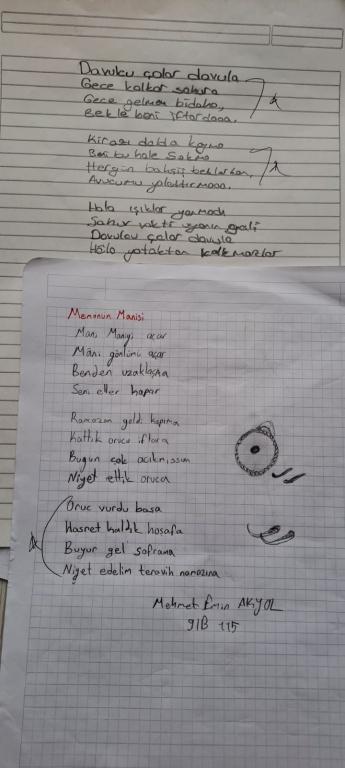 Davulcu çalar davula
Gece kalkar sahura
Gece gelmem bidaha,
Bekle beni iftardaaa.
Kirazı dalda koyma
Beni bu hale sokma
Hergün bahşiş beklerken,
Avucumu yalattırmaaa.
Hala ışıklar yanmadı
Sahur vakti uyanın
Davulcu çalar davula
Hâla yataktan kalkmazlar
Memonun Manisi
Mani Maniyi açar
Mâni gönlümü açar
Benden uzaklaşma
Seni eller kapar
Ramazan geldi kapıma
Kalktık orucu iftara
Bugün çok acıkmışsın
Niyet ettik oruca
Oruc vurdu başa
Hasret kaldık hoşafa
Buyur gel soframa
Niyet edelim teravih namazına
Mehmet Emin AKYOL
9/B 115